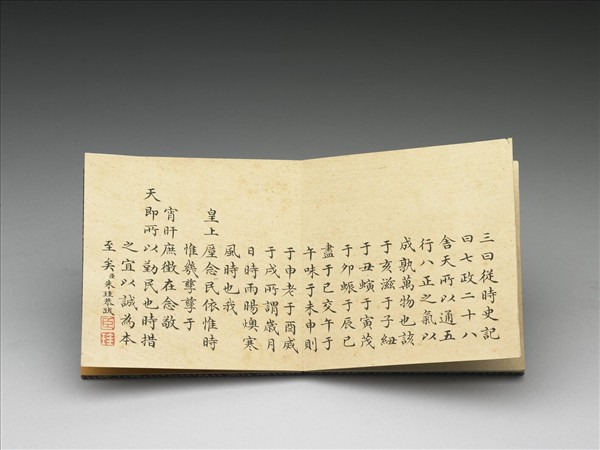 三曰從時史記
曰七政二十八
舍天所以通五
行八正之氣以
成孰萬物也該
于亥滋于子紐
于丑螾于寅茂
于卯蜄于辰已
盡于巳交午于
午味于未申則
于申老于酉烕
于戌所謂歲月
日時雨暘燠寒
風時也我
皇上厪念民依惟時
惟幾孳孳于
宵旰庶徵在念敬
天即所以勤民也時措
之宜以誠為本
至矣臣朱珪恭跋
臣珪